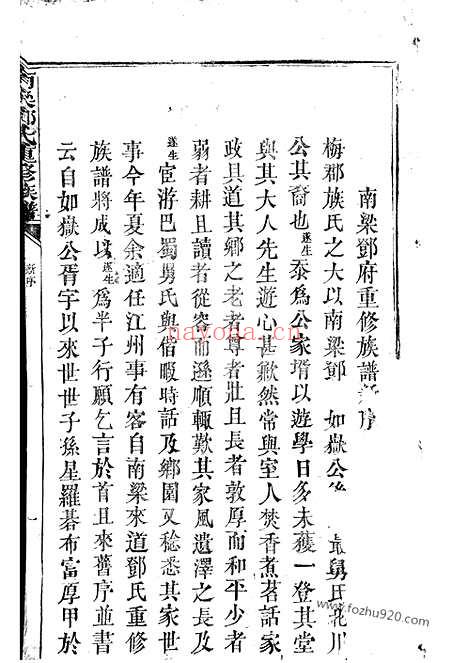 南梁鄧府重修族譜序
梅郡族氏之大以南梁鄧 如嶽公 舅氏 川
公其裔也遂生忝爲公家壻以遊學日多未獲一登其堂
與其大人先生遊心甚歉然常與室人焚香煮茗話家
政具道其鄉之老者尊者壯且長者敦厚而和平少者
弱者耕且讀者從容而遜順輒歎其家風遺澤之長及
遂生宦游巴蜀舅氏與偕暇時話及鄉園又稔悉其家世
事今年夏余適任江州事有客自南梁來道鄧氏重修
族譜將成以遂生爲半子行願乞言於首且來舊序並書
云自如嶽公胥宇以來世世子孫星羅碁布富厚甲於
南 鄧氏重修族譜
新序
一
nayona.cn
www.fozhu920.com